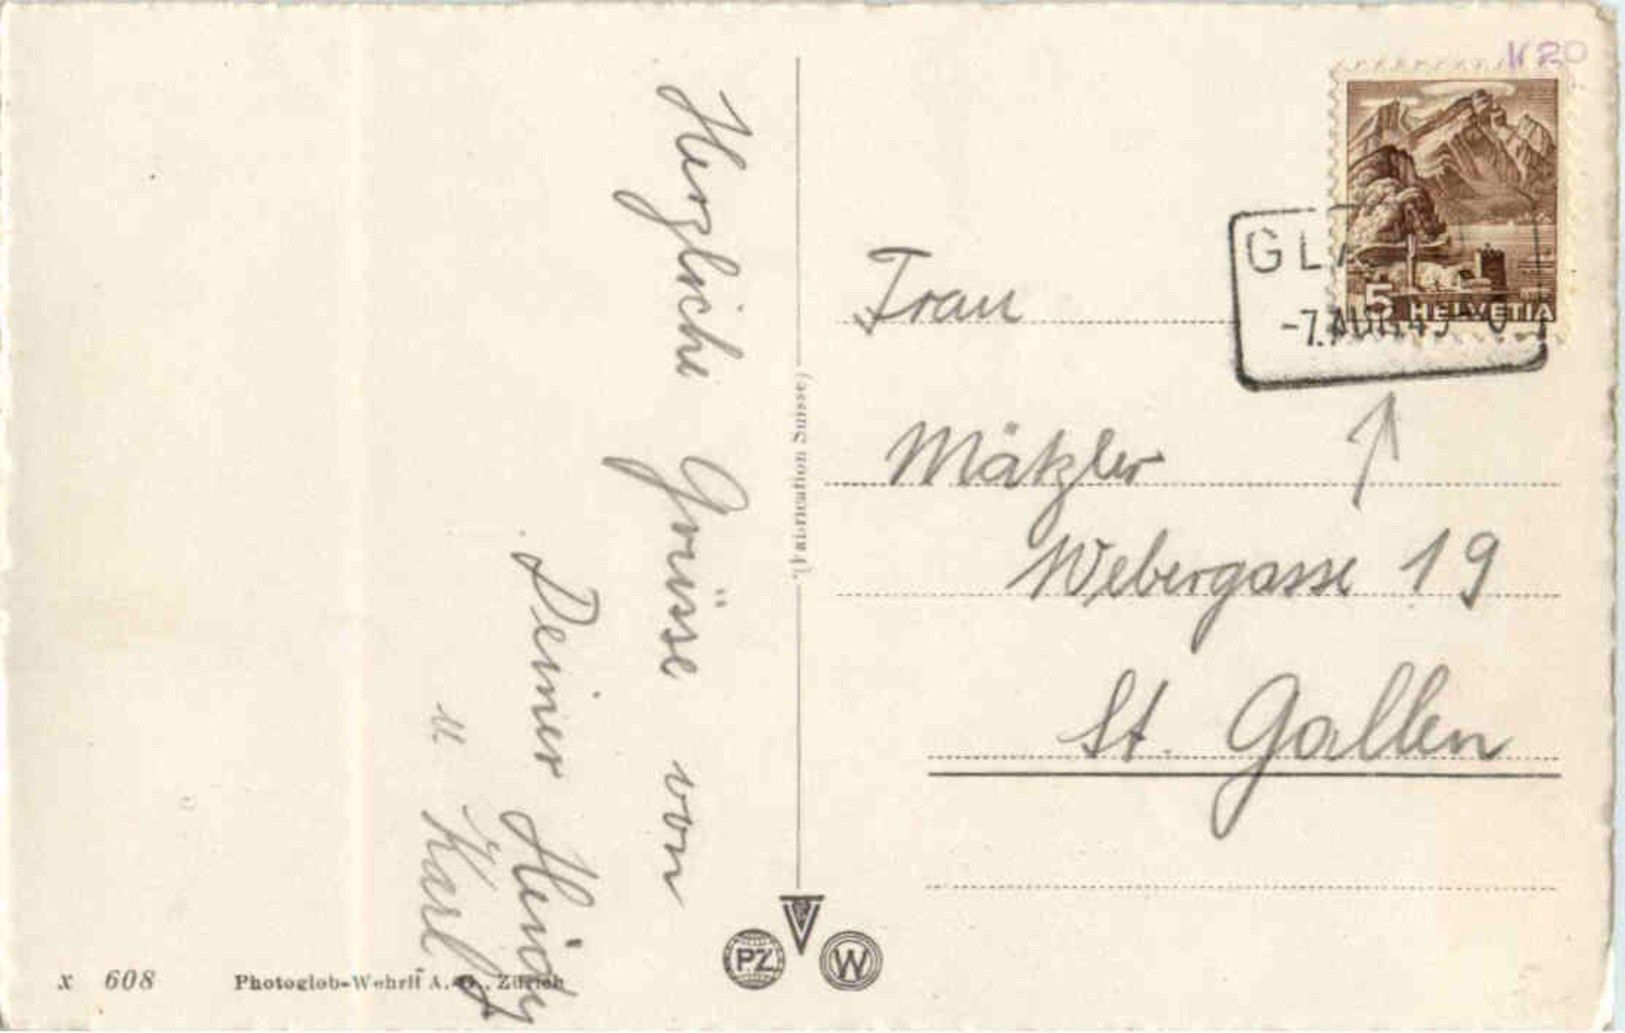 Herzliche Grüsse von
Deiner Heidy
u. Karl
x 608
Photoglob-Wehrli A. G., Zürich
(Fabrication Suisse)
PZ
W
K20
5 HELVETIA
-7.AUG.45
Frau
Mätzler
Webergasse 19
St. Gallen